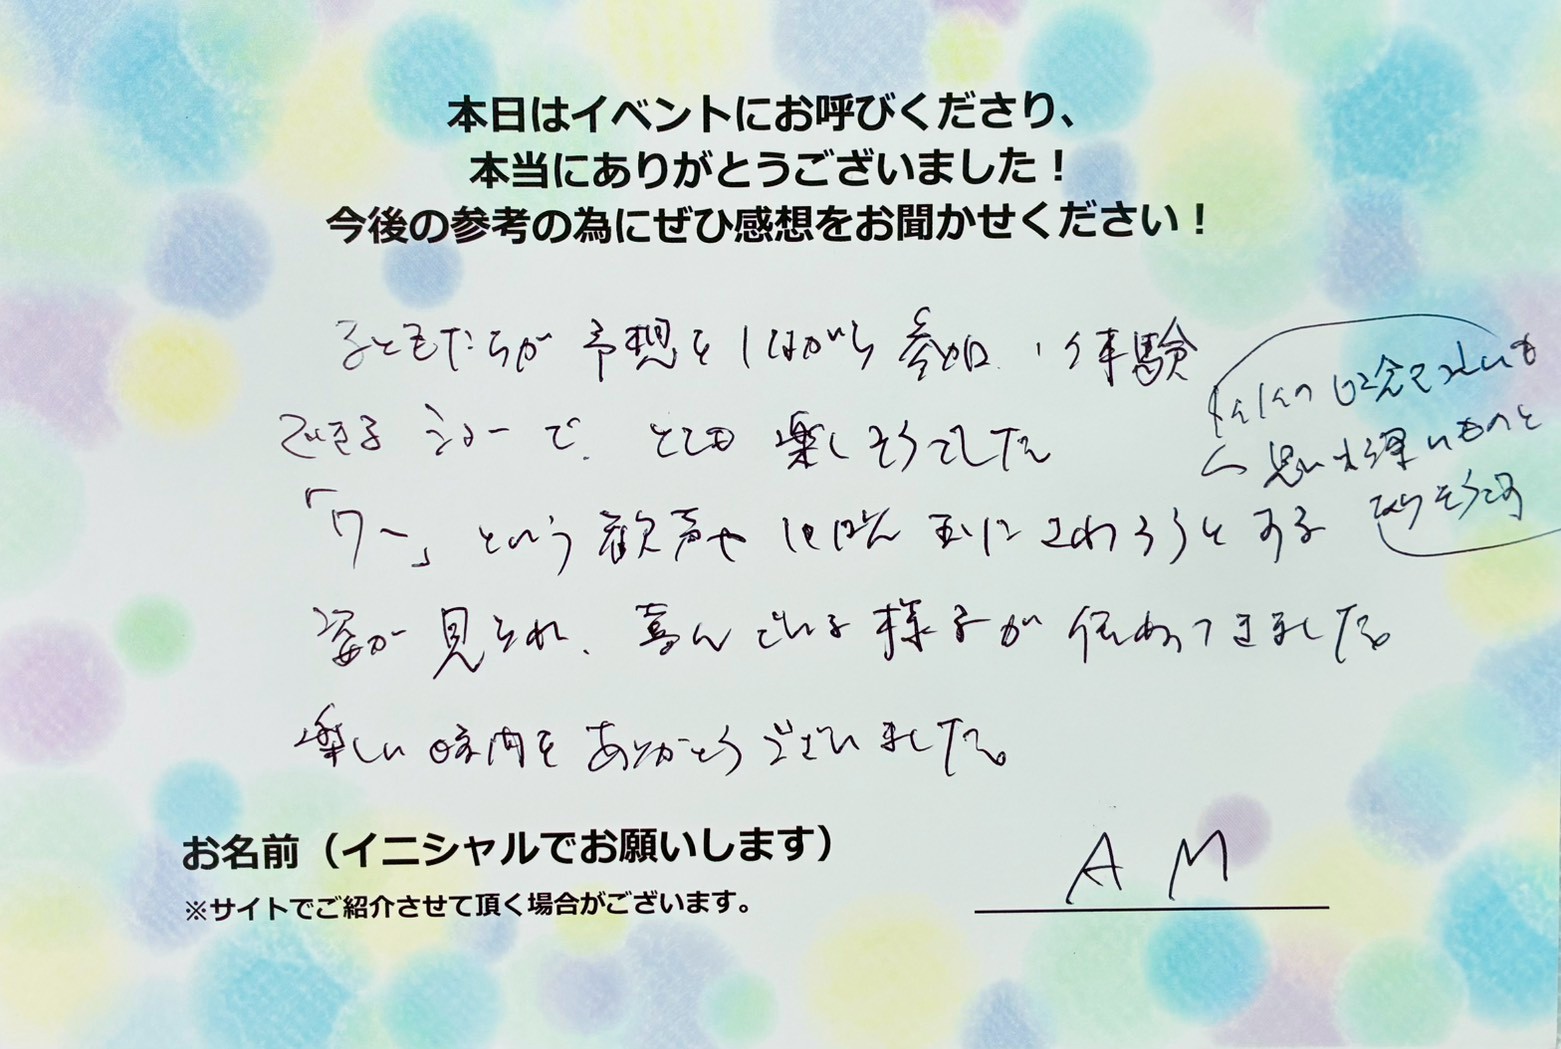 本日はイベントにお呼びくださり、
本当にありがとうございました！
今後の参考の為にぜひ感想をお聞かせください！
子どもたちが予想をしながら参加、体験
できるショーで、とても楽しそうでした
「ワー」という歓声や シャボン玉にさわろうとする
姿が見られ、喜んでいる様子が伝わってきました。
楽しい時間をありがとうございました。
記念でとても
思い出深いものと
なりそうです
お名前（イニシャルでお願いします）
A M
※サイトでご紹介させて頂く場合がございます。